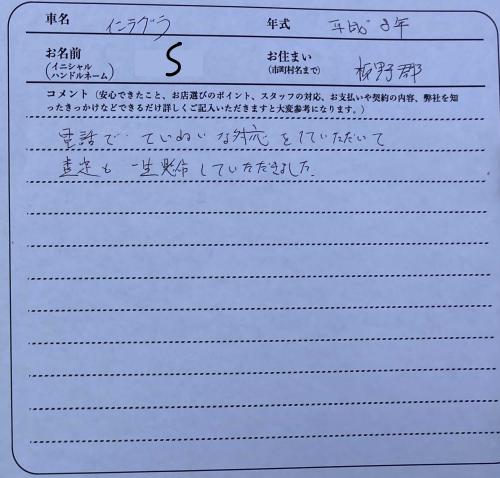 車名 インテグラ 年式 平成8年
お名前 S お住まい 板野郡
(イニシャル (市町村名まで)
ハンドルネーム)
コメント（安心できたこと、お店選びのポイント、スタッフの対応、お支払いや契約の内容、弊社を知
ったきっかけなどできるだけ詳しくご記入いただきますと大変参考になります。）
電話で ていねいな対応をしていただいて
査定も 一生懸命していただきました。